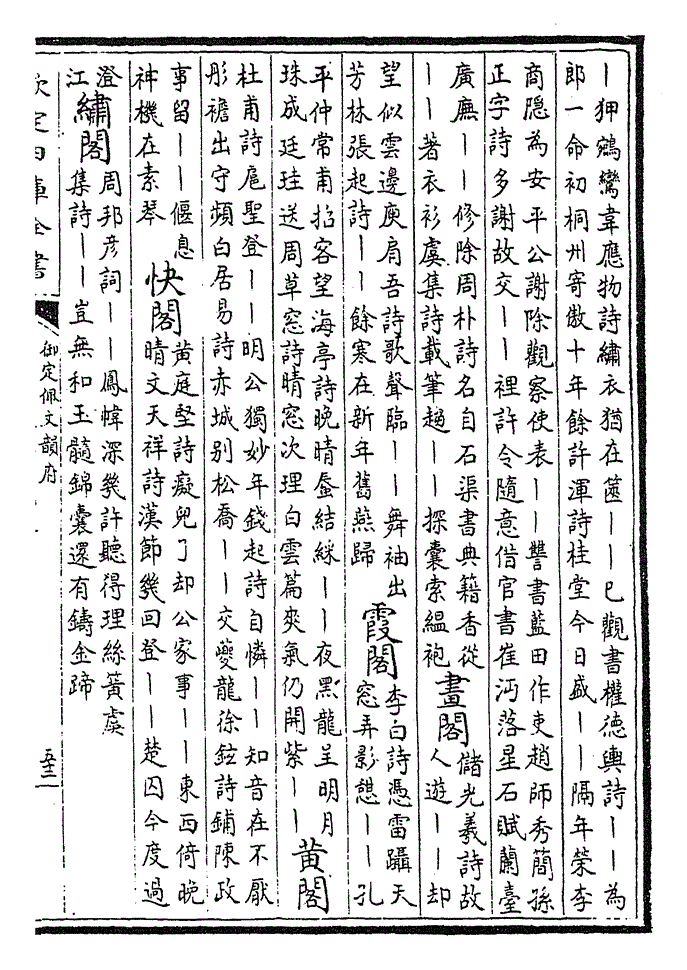 丨狎鵷鸞韋應物詩繡衣猶在篋丨丨巳觀書權德輿詩丨丨為
郎一命初桐州寄傲十年餘許渾詩桂堂今日盛丨丨隔年榮李
商隐為安平公謝除觀察使表丨丨讐書藍田作吏趙師秀簡孫
正字詩多謝故交丨丨裡許令隨意借官書崔沔落星石賦蘭臺
廣廡丨丨修除周朴詩名自石渠書典籍香從
丨丨著衣衫虞集詩載筆趨丨丨探囊索緼袍
畫閣
儲光羲詩故
人遊丨丨却
望似雲邊庾肩吾詩歌聲臨丨丨舞袖出
芳林張起詩丨丨餘寒在新年舊燕歸
霞閣
李白詩憑雷躡天
窓弄影憇丨丨孔
平仲常甫招客望海亭詩晩晴蜃結綵丨丨夜黑龍呈明月
珠成廷珪送周草窓詩晴窓次理白雲篇爽氣仍開紫丨丨
黄閣
杜甫詩扈聖登丨丨明公獨妙年錢起詩自憐丨丨知音在不厭
彤襜出守頻白居易詩赤城别松喬丨丨交夔龍徐鉉詩鋪陳政
事留丨丨偃息
神機在素琴
快閣
黄庭堅詩癡兒了却公家事丨丨東西倚晩
晴文天祥詩漢節幾回登丨丨楚囚今度過
澄
江
繡閣
周邦彦詞丨丨鳳幃深幾許聽得理絲簧虞
集詩丨丨豈無和玉髓錦囊還有鑄金蹄
欽定四庫全書
御定佩文韻府